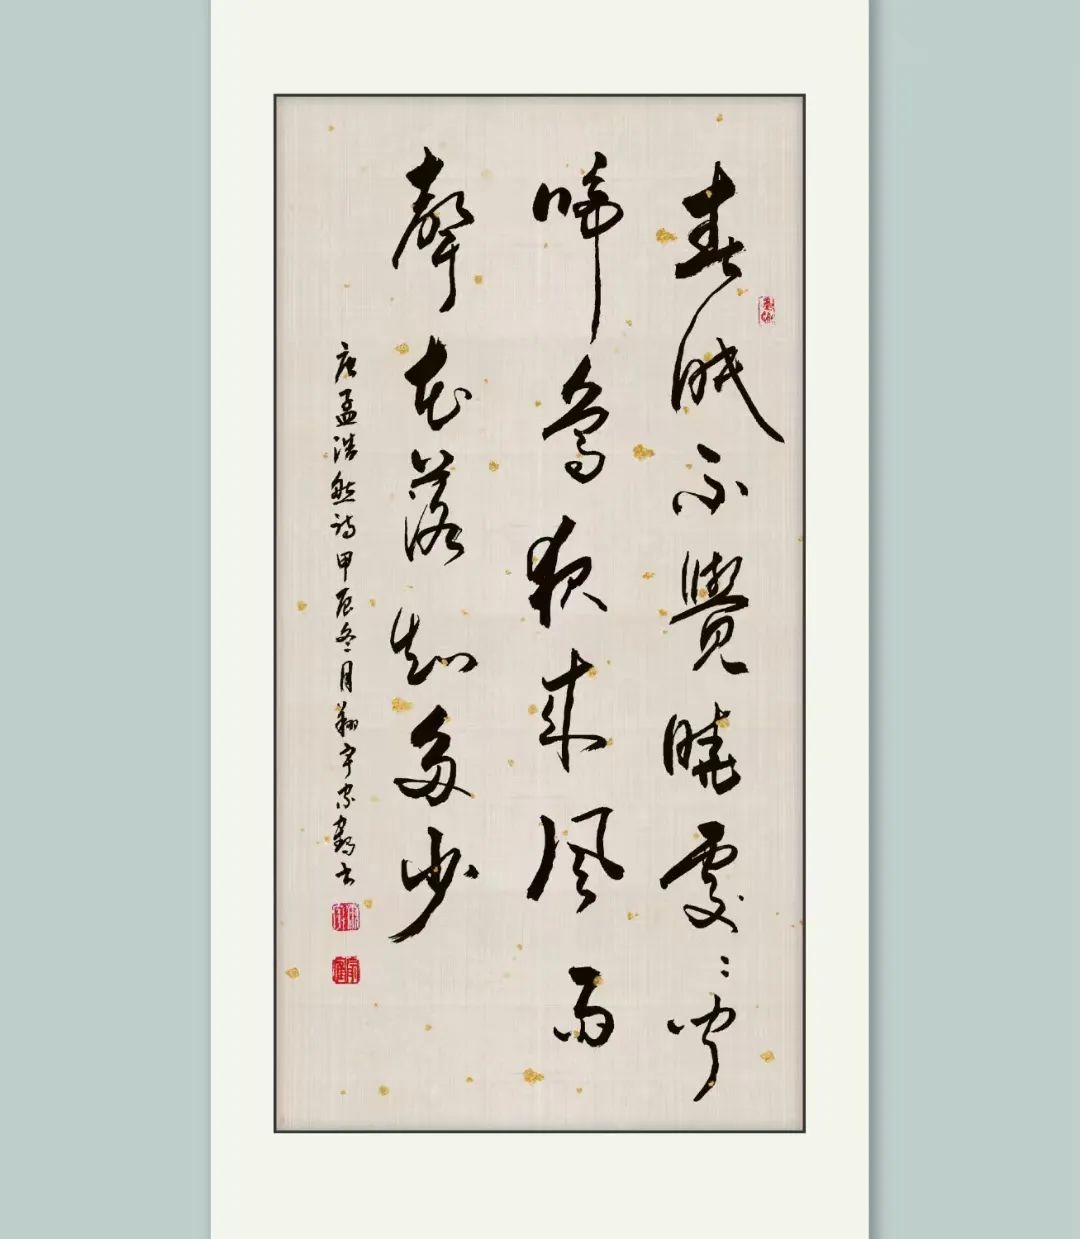 春眠不覺曉處〻聞
啼鳥夜來風雨
聲花落知多少
唐孟浩然诗甲辰冬月翔宇鶴书